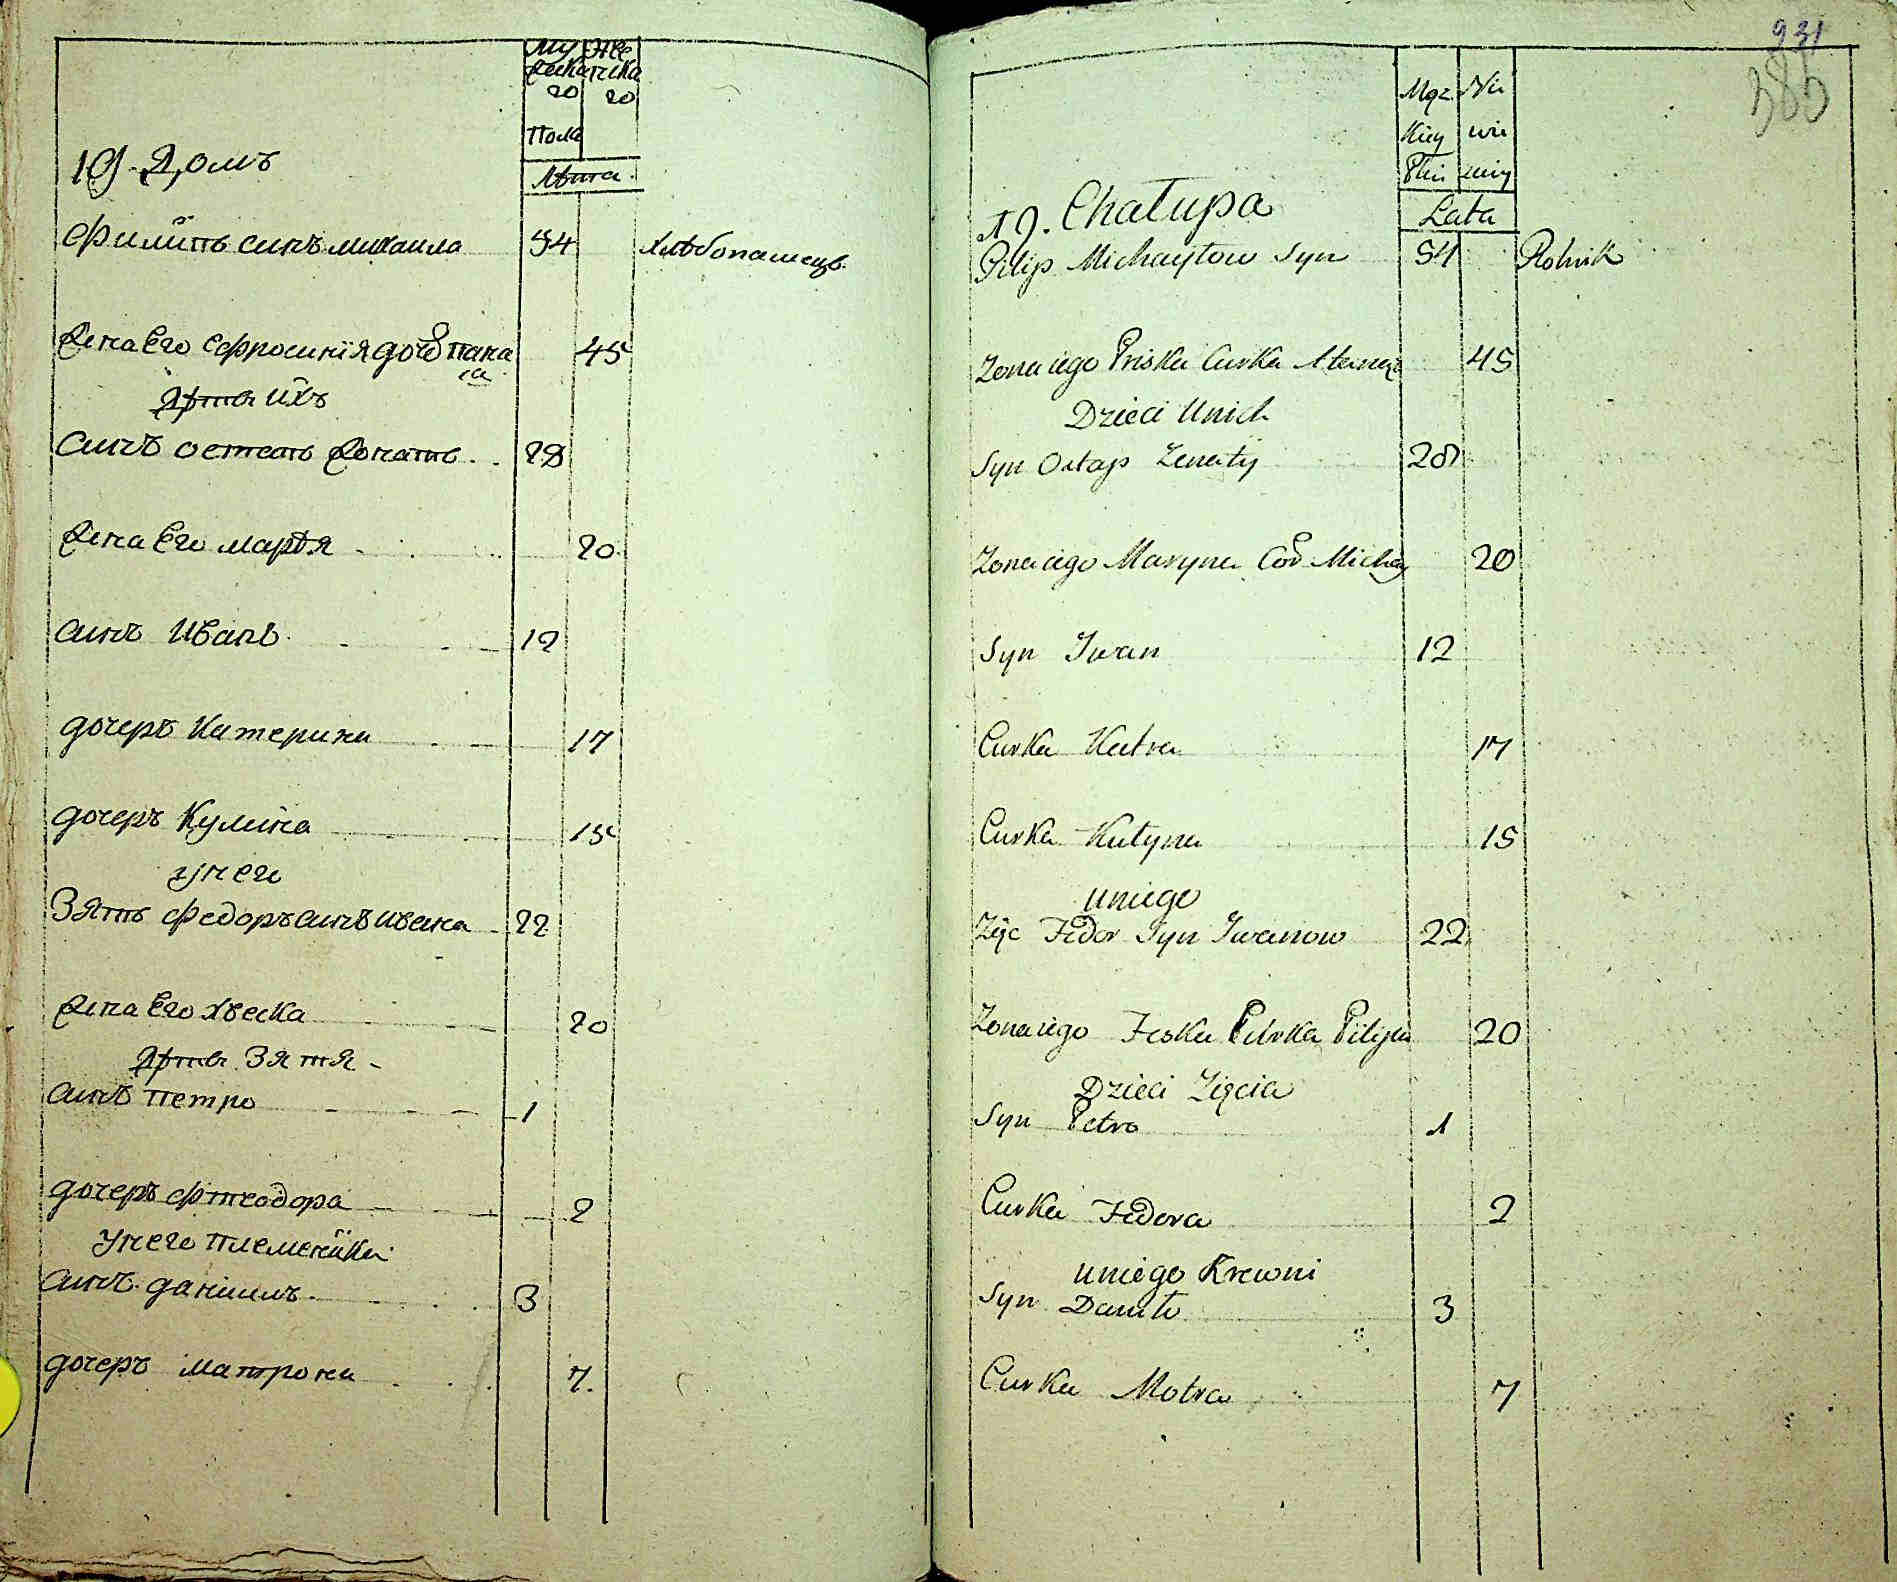 Му Же
жеска нска
го го
пола
Лѣта
19. Домъ
Филипъ синъ михаила 54 Хлѣбопашецъ
жена Его Ефросинїя доче пана 45
са
Дѣти ихъ
синъ остапъ жонатъ 28
жена Его маръя 20
синъ Иванъ 12
дочеръ Катерина 17
дочеръ Кулина 15
унего
Зятъ Федоръ синъ ивана 22
жена Его хвеска 20
Дѣти Зятя
синъ петро 1
дочеръ фтеодора 2
унего племенїки
синъ данїилъ 3
дочеръ матрона 7
931
386
Męz Nie
Kiey wie
Płci
Lata
19. Chałupa
Pilip Michayłow Syn 54 Rolnik
Zona iego Priska Curka 45
Dzieci Unich
Syn Ostap Zenaty 28
Zona iego Maryna Cor Michay 20
Syn Iwan 12
Curka Katra 17
Curka Kulyna 15
uniego
Zięc Fedor Syn Iwanow 22
Zona iego Feska Curka Pilipa 20
Dzieci Zięcia
Syn Petro 1
Curka Fedora 2
uniego Krewni
Syn Daniło 3
Curka Motra 7